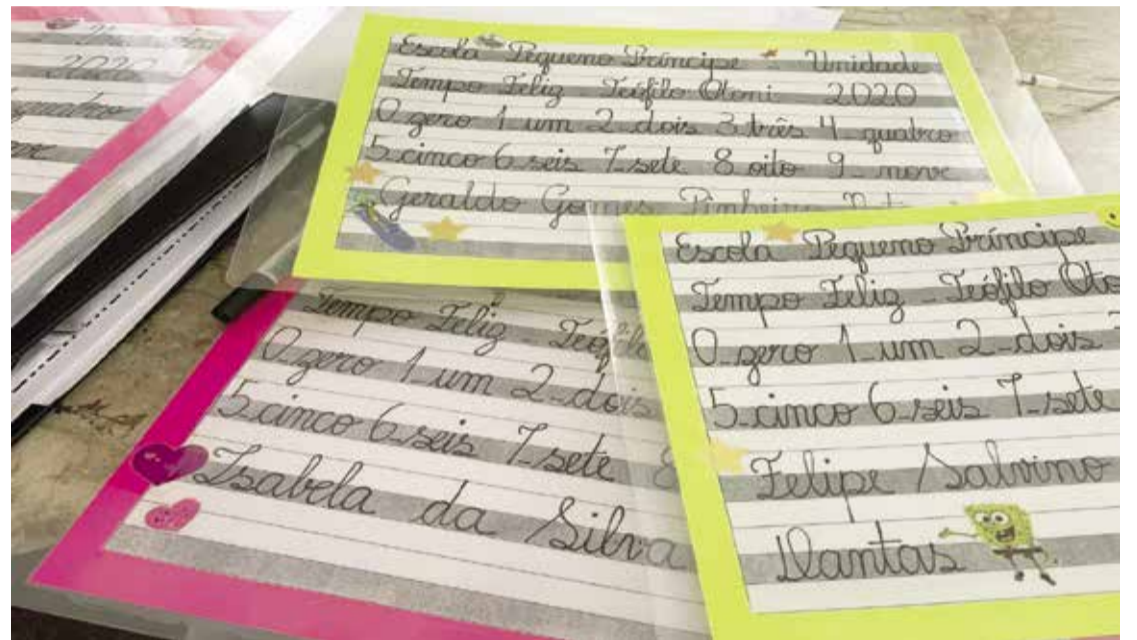 2020
Escola Pequeno Príncipe - Unidade
Tempo Feliz Teófilo Otoni 2020
0 zero 1 um 2 dois 3 três 4 quatro
5 cinco 6 seis 7 sete 8 oito 9 nove
Geraldo Gomes Pinheiro
Tempo Feliz - Teófilo
0 zero 1 um 2 dois
5 cinco 6 seis 7 sete 8
Isabela da Silva
Escola Pequeno Príncipe
Tempo Feliz - Teófilo Oto
0 zero 1 um 2 dois
5 cinco 6 seis 7 sete
Felipe Salvino
Dantas